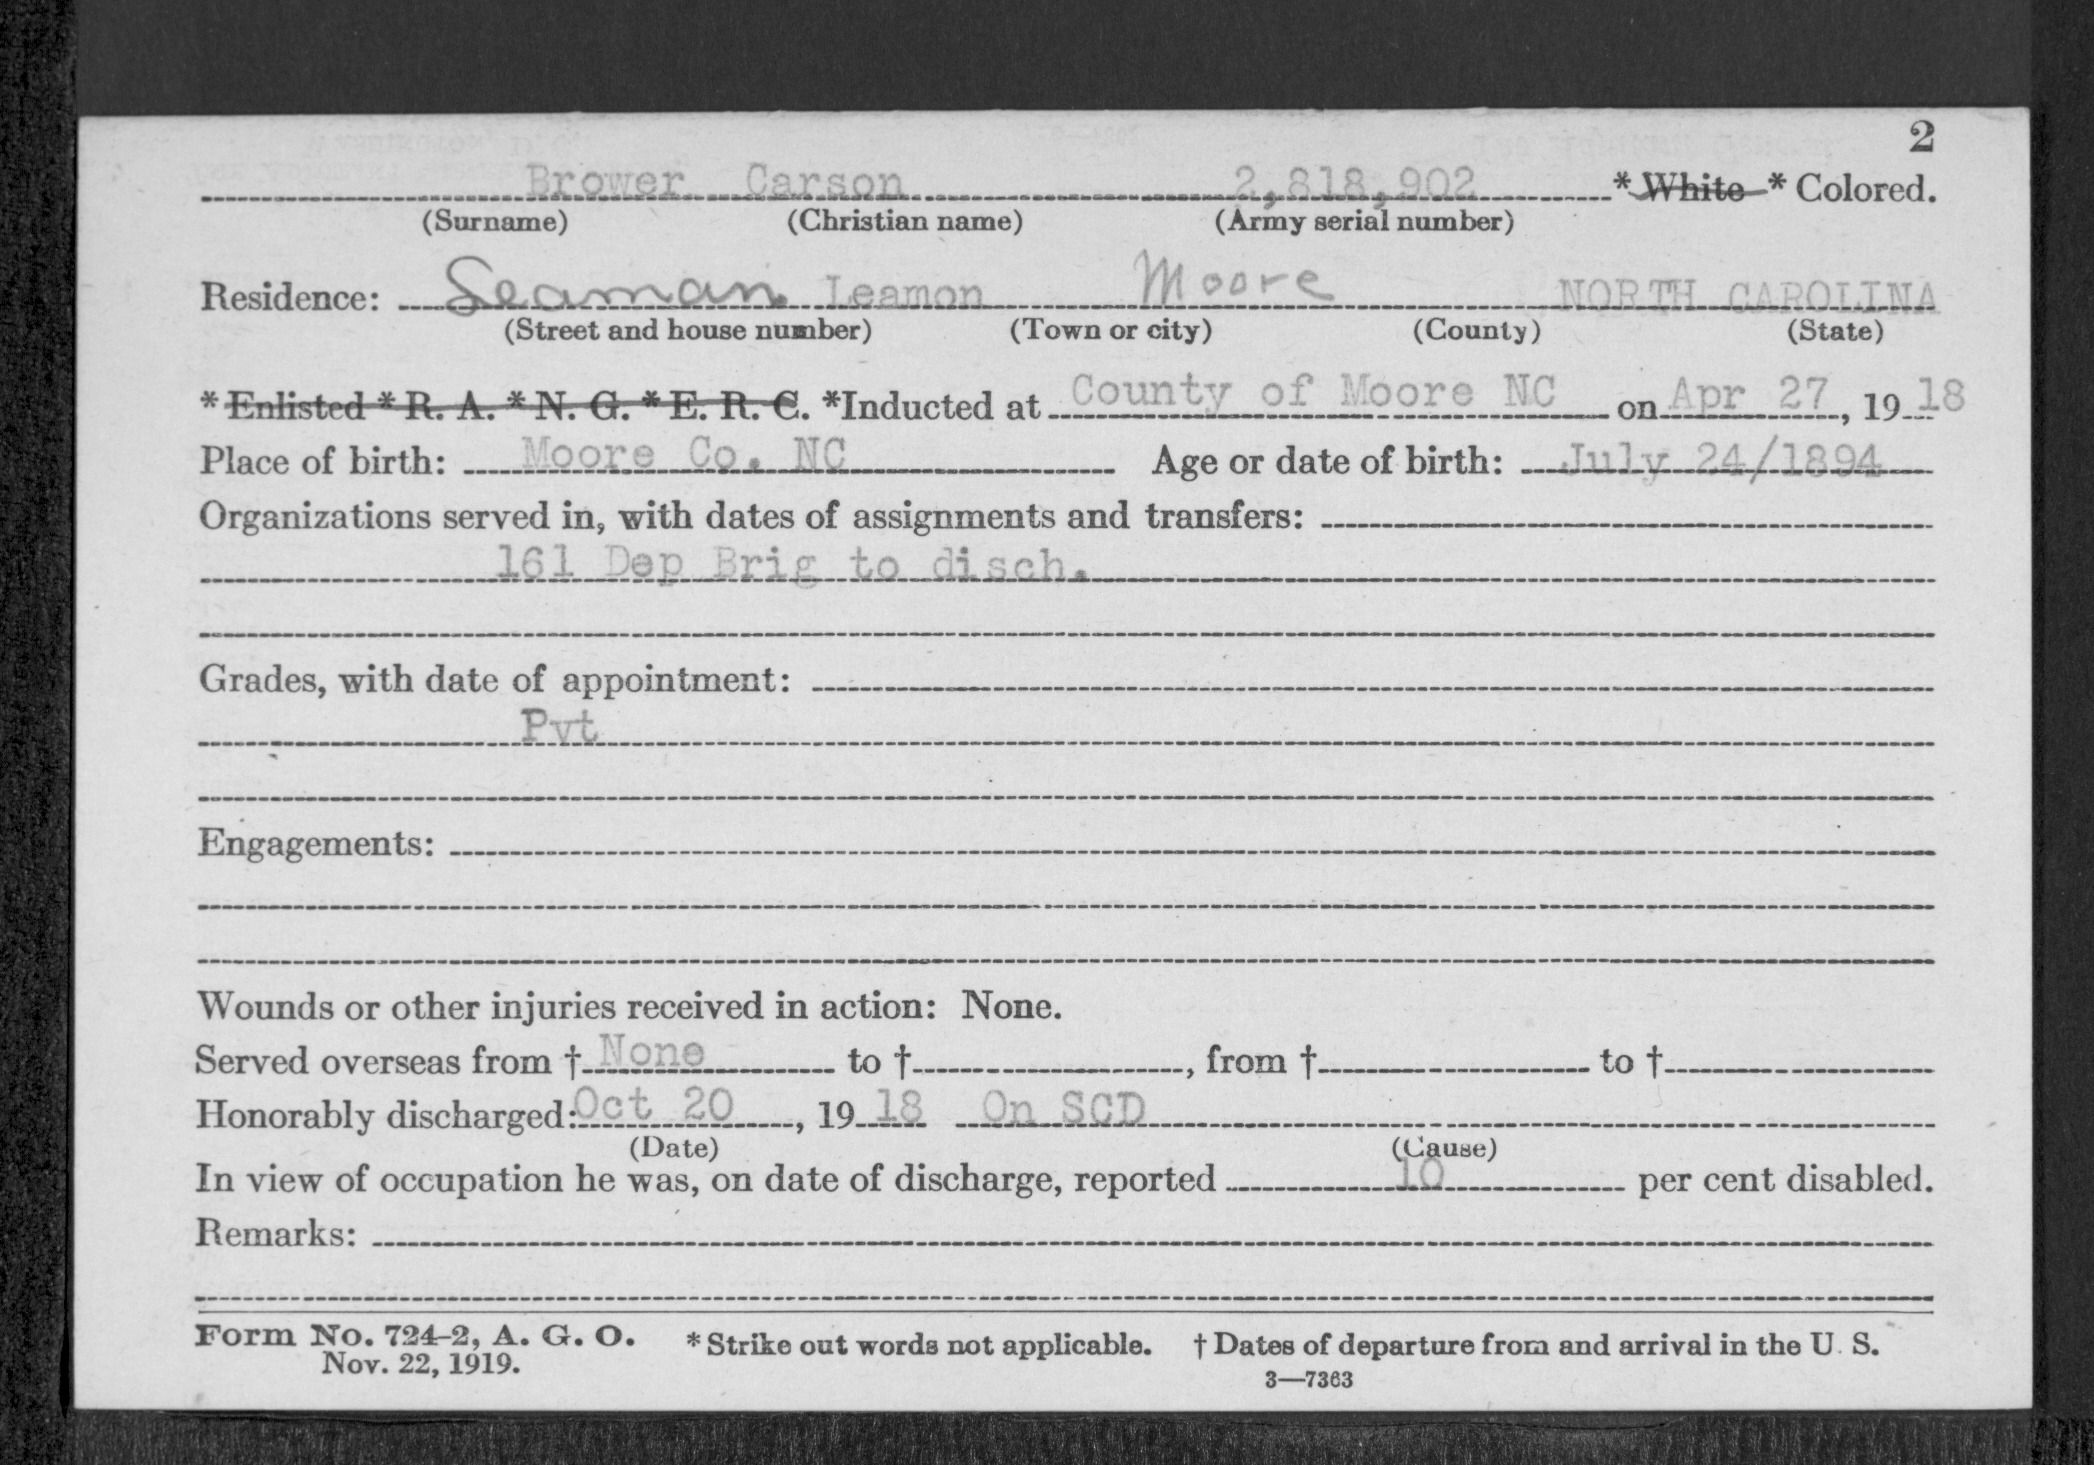 2
Brower Carson 2,818,902 * White * Colored.
(Surname) (Christian name) (Army serial number)
Residence: Seaman Leamon Moore NORTH CAROLINA
(Street and house number) (Town or city) (County) (State)
* Enlisted * R. A. * N. G. * E. R. C. *Inducted at County of Moore NC on Apr 27, 19 18
Place of birth: Moore Co. NC Age or date of birth: July 24/1894
Organizations served in, with dates of assignments and transfers:
161 Dep Brig to disch.
Grades, with date of appointment:
Pvt
Engagements:
Wounds or other injuries received in action: None.
Served overseas from † None to †, from † to †
Honorably discharged: Oct 20, 19 18 On SCD
(Date) (Cause)
In view of occupation he was, on date of discharge, reported 10 per cent disabled.
Remarks:
Form No. 724-2, A. G. O. * Strike out words not applicable. † Dates of departure from and arrival in the U. S.
Nov. 22, 1919. 3—7363